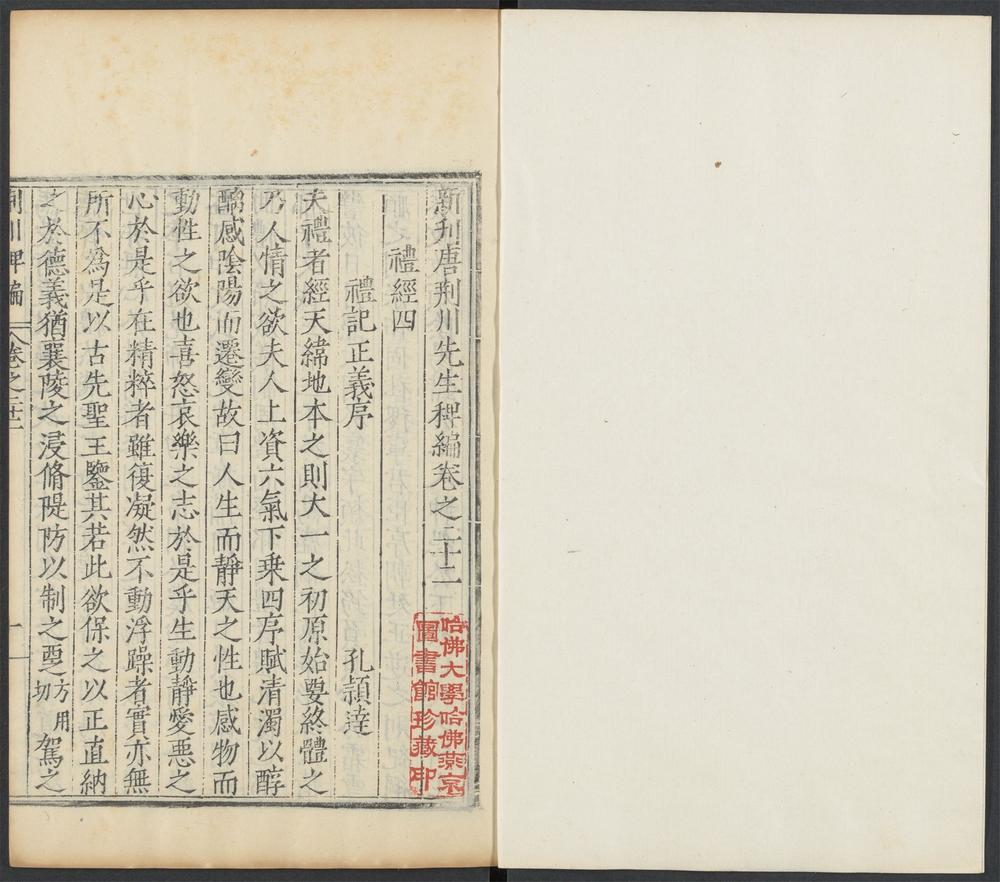 新刋唐荆川先生稗編卷之二十二
禮經四
禮記正義序 孔頴達
夫禮者經天緯地本之則大一之初原始要終體之
乃人情之欲夫人上資六氣下乗四序賦清濁以醇
醨感隂陽而遷變故曰人生而靜天之性也感物而
動性之欲也喜怒哀樂之志於是乎生動靜愛惡之
心於是乎在精粹者雖復凝然不動浮躁者實亦無
所不爲是以古先聖王鑒其若此欲保之以正直納
之於德義猶襄陵之浸脩隄防以制之覂方用切駕之
荆川稗編 卷之二十二 一
哈佛大學哈佛燕京
圖書館珍藏印